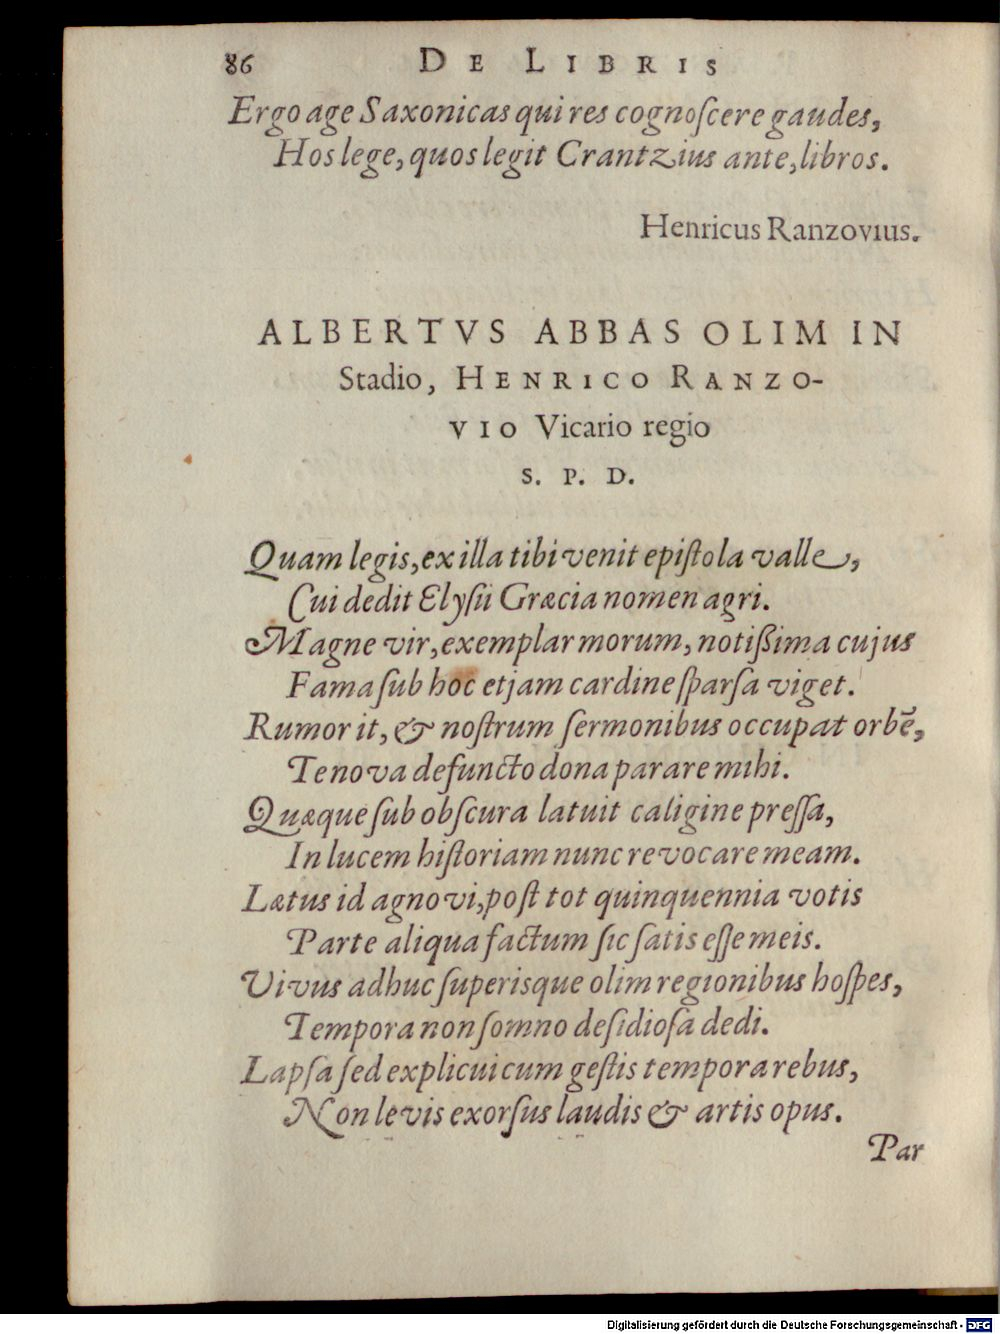 86 DE LIBRIS
Ergo age Saxonicas qui res cognoſcere gaudes,
Hos lege, quos legit Crantzius ante, libros.
Henricus Ranzovius.
ALBERTVS ABBAS OLIM IN
Stadio, HENRICO RANZO-
VIO Vicario regio
S. P. D.
Quam legis, ex illa tibi venit epiſtola valle,
Cui dedit Elyſii Græcia nomen agri.
Magne vir, exemplar morum, notiſſima cujus
Fama ſub hoc etjam cardine ſparſa viget.
Rumor it, & noſtrum ſermonibus occupat orbẽ,
Te nova defuncto dona parare mihi.
Quæque ſub obſcura latuit caligine preſſa,
In lucem hiſtoriam nunc revocare meam.
Lætus id agnovi, poſt tot quinquennia votis
Parte aliqua factum ſic ſatis eſſe meis.
Vivus adhuc ſuperisque olim regionibus hoſpes,
Tempora non ſomno deſidioſa dedi.
Lapſa ſed explicui cum geſtis tempora rebus,
Non levis exorſus laudis & artis opus.
Par
Digitalisierung gefördert durch die Deutsche Forschungsgemeinschaft - DFG